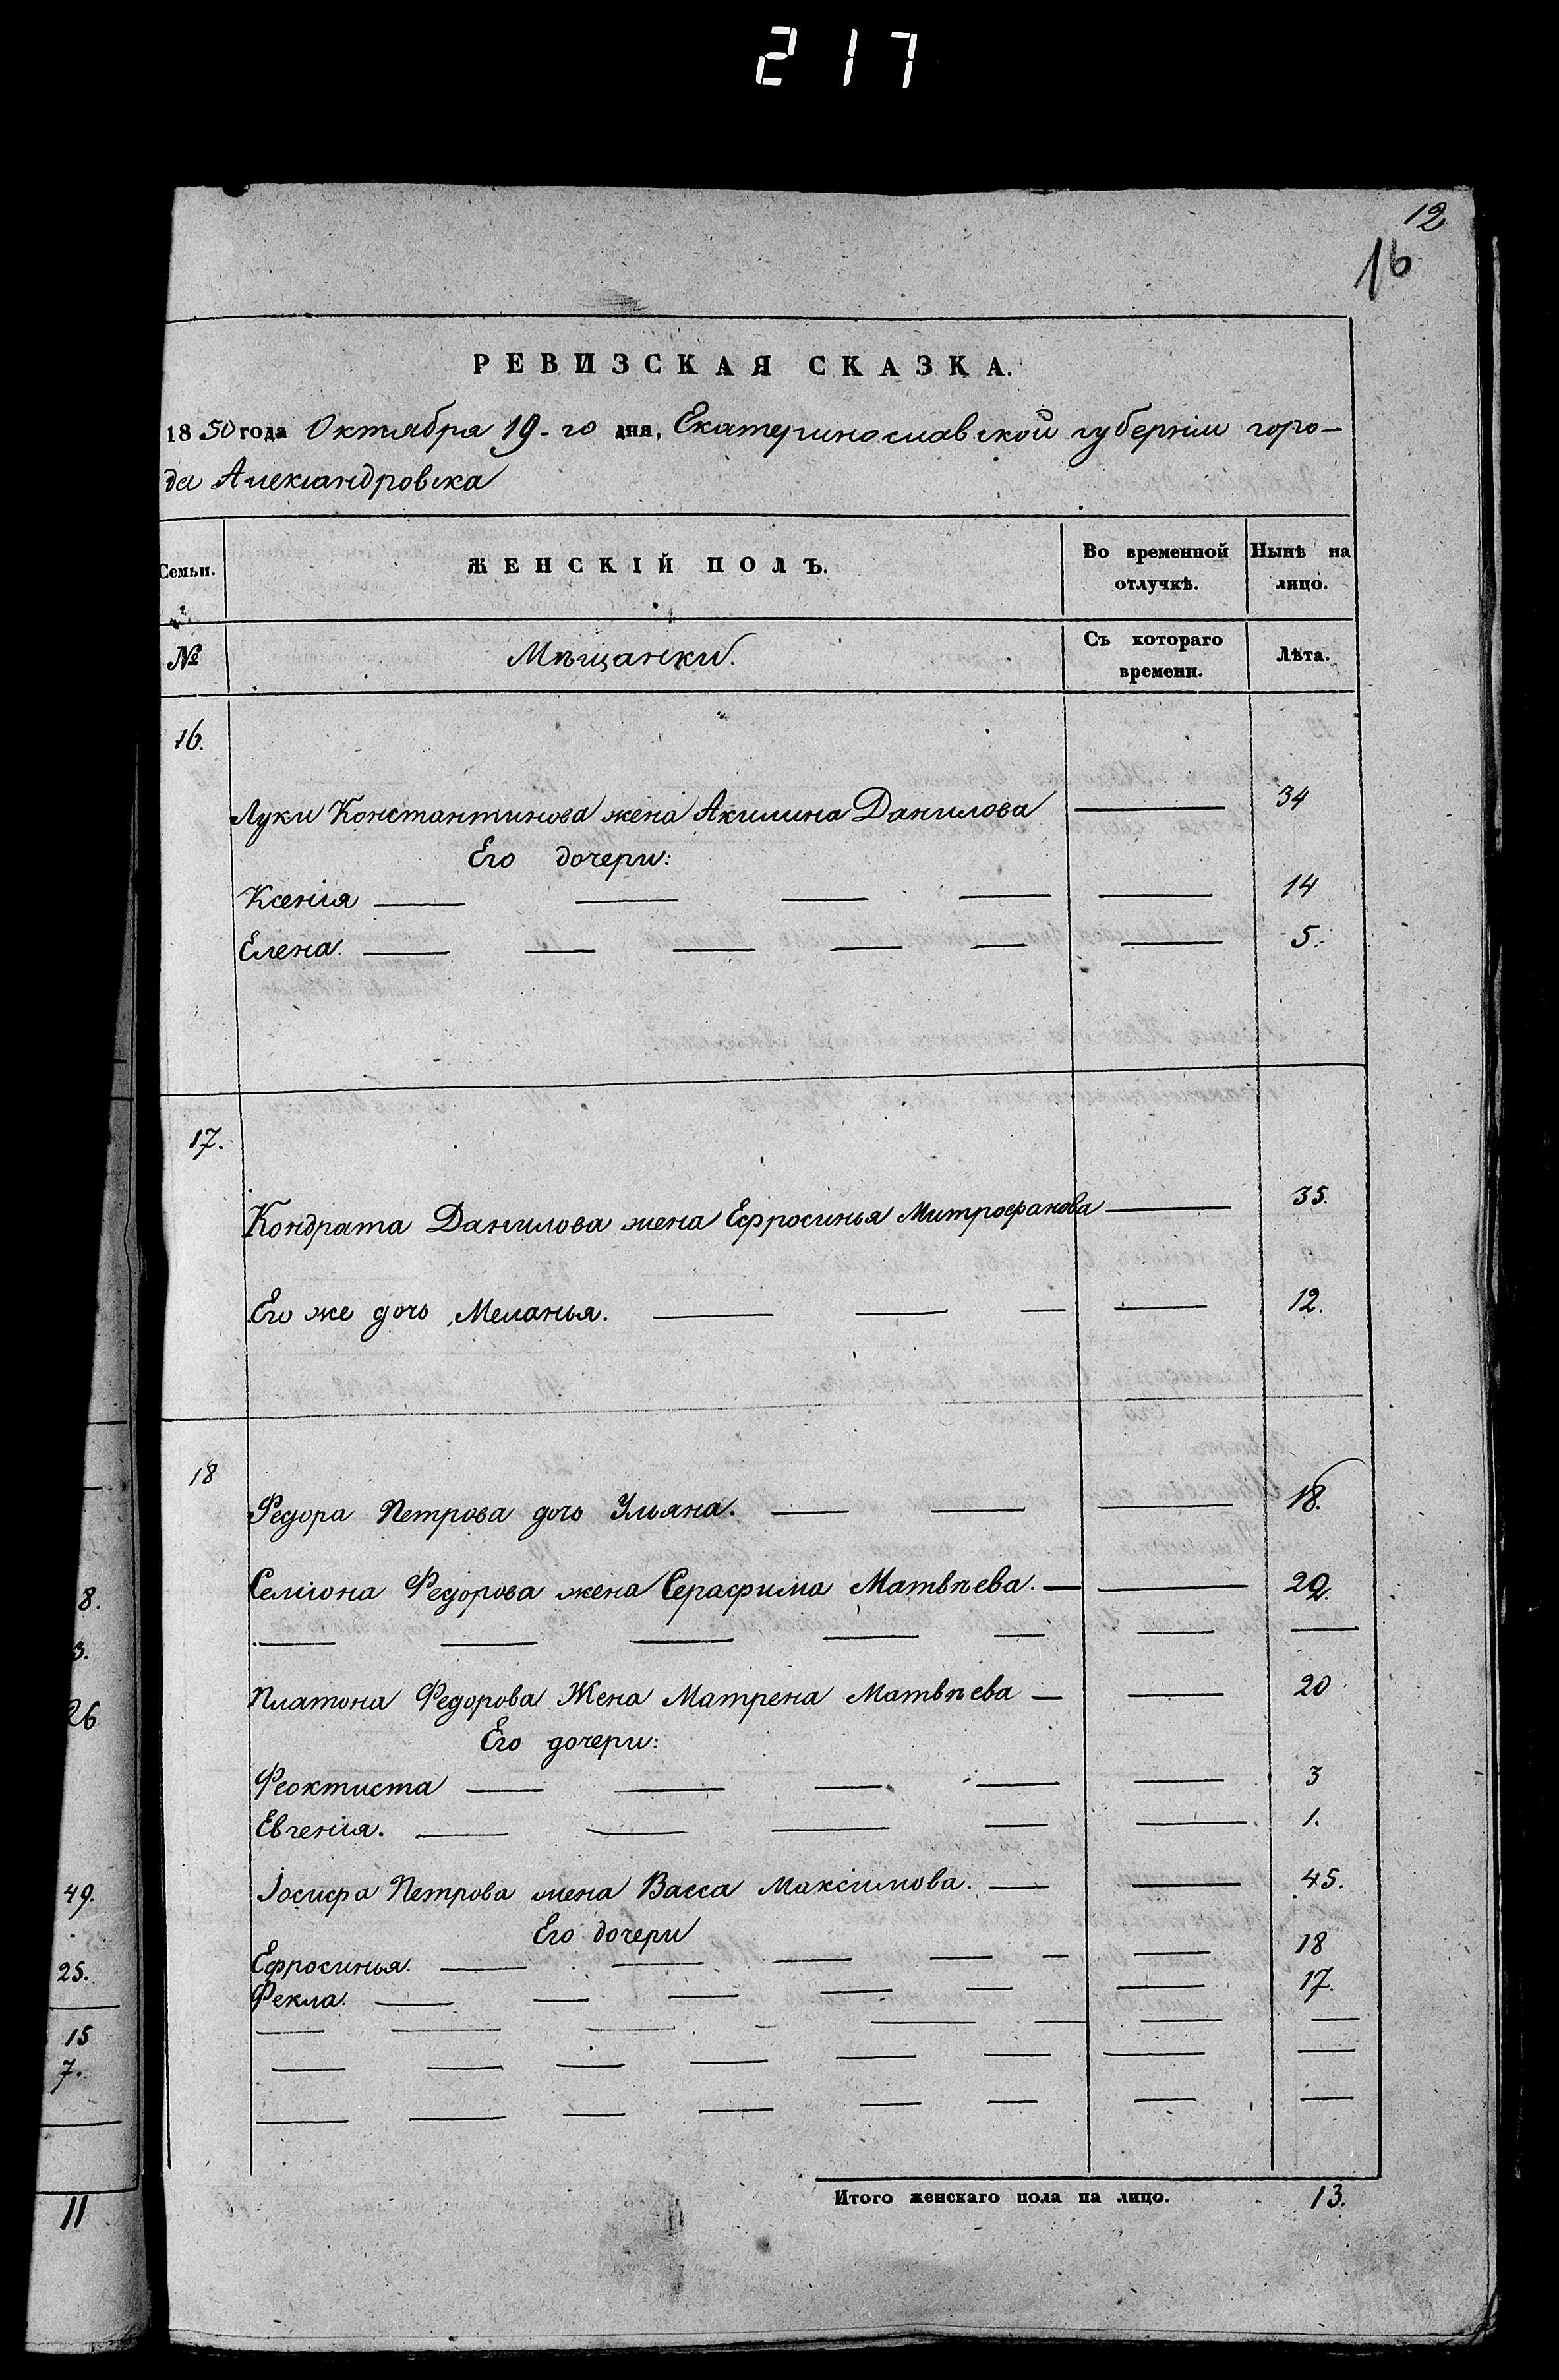 217
12
16
РЕВИЗСКАЯ СКАЗКА.
1850 года Октября 19-го дня, Екатеринославской губерніи горо-
да Александровска
Семьи. ЖЕНСКІЙ ПОЛЪ. Во временной отлучкѣ. Нынѣ на лицо.
№ Мѣщанки. Съ котораго времени. Лѣта.
16.
Луки Константинова жена Акилина Данилова — 34
Его дочери:
Ксенія — — — — — 14
Елена. — — — — — — 5.
17.
Кондрата Данилова жена Ефросинья Митрофанова — 35.
Его же дочь Меланья. — — — — 12.
18
Федора Петрова дочь Ульяна. — — — 18.
Семіона Федорова жена Серафима Матвѣева. — — 22.
— — — — — — —
Платона Федорова Жена Матрена Матвѣева — — 20
Его дочери:
Феоктиста — — — — — 3
Евгенія. — — — — — 1.
Іосифа Петрова жена Васса Максимова. — — 45.
Его дочери
Ефросинья. — — — — — — 18
Фекла. — — — — — — 17.
— — — — — — — —
— — — — — — — —
— — — — — — — —
Итого женскаго пола на лицо. 13.
8.
3.
26
49.
25.
15
7.
11